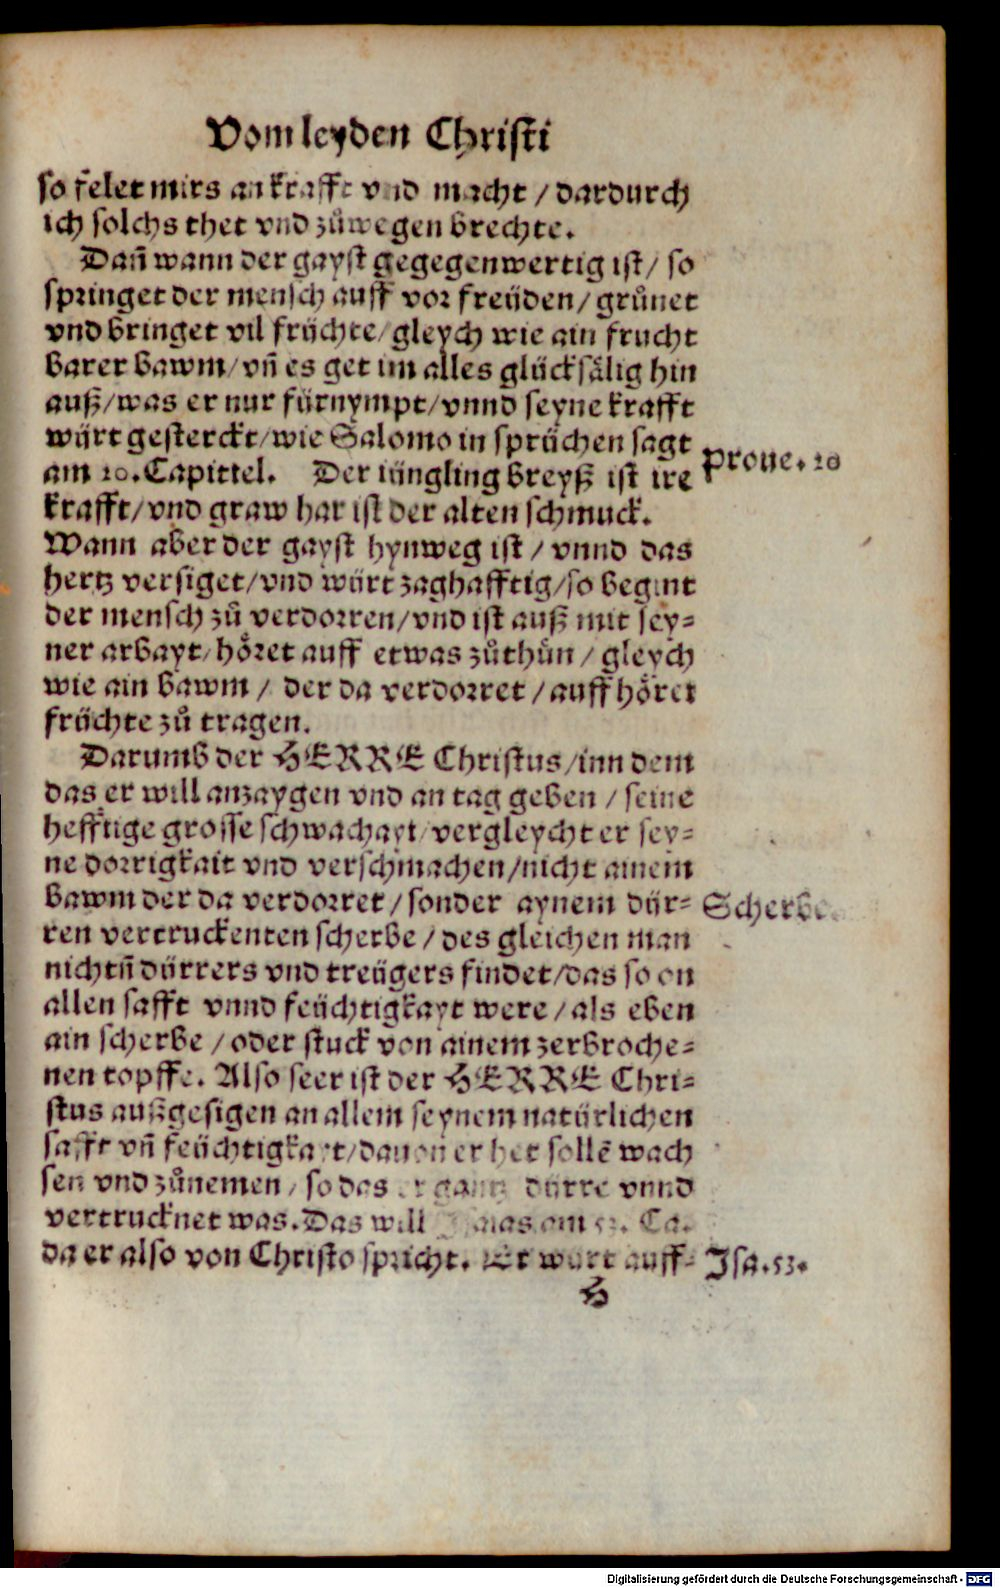 Vom leyden Christi
so felet mirs an krafft vnd macht / dardurch
ich solchs thet vnd zůwegen brechte.
Dañ wann der gayst gegegenwertig ist / so
springet der mensch auff vor freüden / grůnet
vnd bringet vil früchte / gleych wie ain frucht
barer bawm / vñ es get im alles glücksälig hin
auß / was er nur fürnympt / vnnd seyne krafft
würt gesterckt / wie Salomo in sprüchen sagt
am 20. Capittel. Der iüngling breyß ist ire
Proue. 20
krafft / vnd graw har ist der alten schmuck.
Wann aber der gayst hynweg ist / vnnd das
hertz versiget / vnd würt zaghafftig / so begint
der mensch zů verdorren / vnd ist auß mit sey-
ner arbayt / höret auff etwas zůthůn / gleych
wie ain bawm / der da verdorret / auff höret
früchte zů tragen.
Darumb der HERRE Christus / inn dem
das er will anzaygen vnd an tag geben / seine
hefftige grosse schwachayt / vergleycht er sey-
ne dorrigkait vnd verschmachen / nicht ainem
bawm der da verdorret / sonder aynem dür-
Scherbe
ren vertruckenten scherbe / des gleichen man
nichtñ dürrers vnd treügers findet / das so on
allen safft vnnd feüchtigkayt were / als eben
ain scherbe / oder stuck von ainem zerbroche-
nen topffe. Also seer ist der HERRE Chri-
stus außgesigen an allem seynem natürlichen
safft vñ feüchtigkayt / dauon er het sollē wach
sen vnd zůnemen / so das er gantz dürre vnnd
vertrucknet was. Das will am 53. Ca.
da er also von Christo spricht. Er würt auff-
Isa. 53.
H
Digitalisierung gefördert durch die Deutsche Forschungsgemeinschaft - DFG